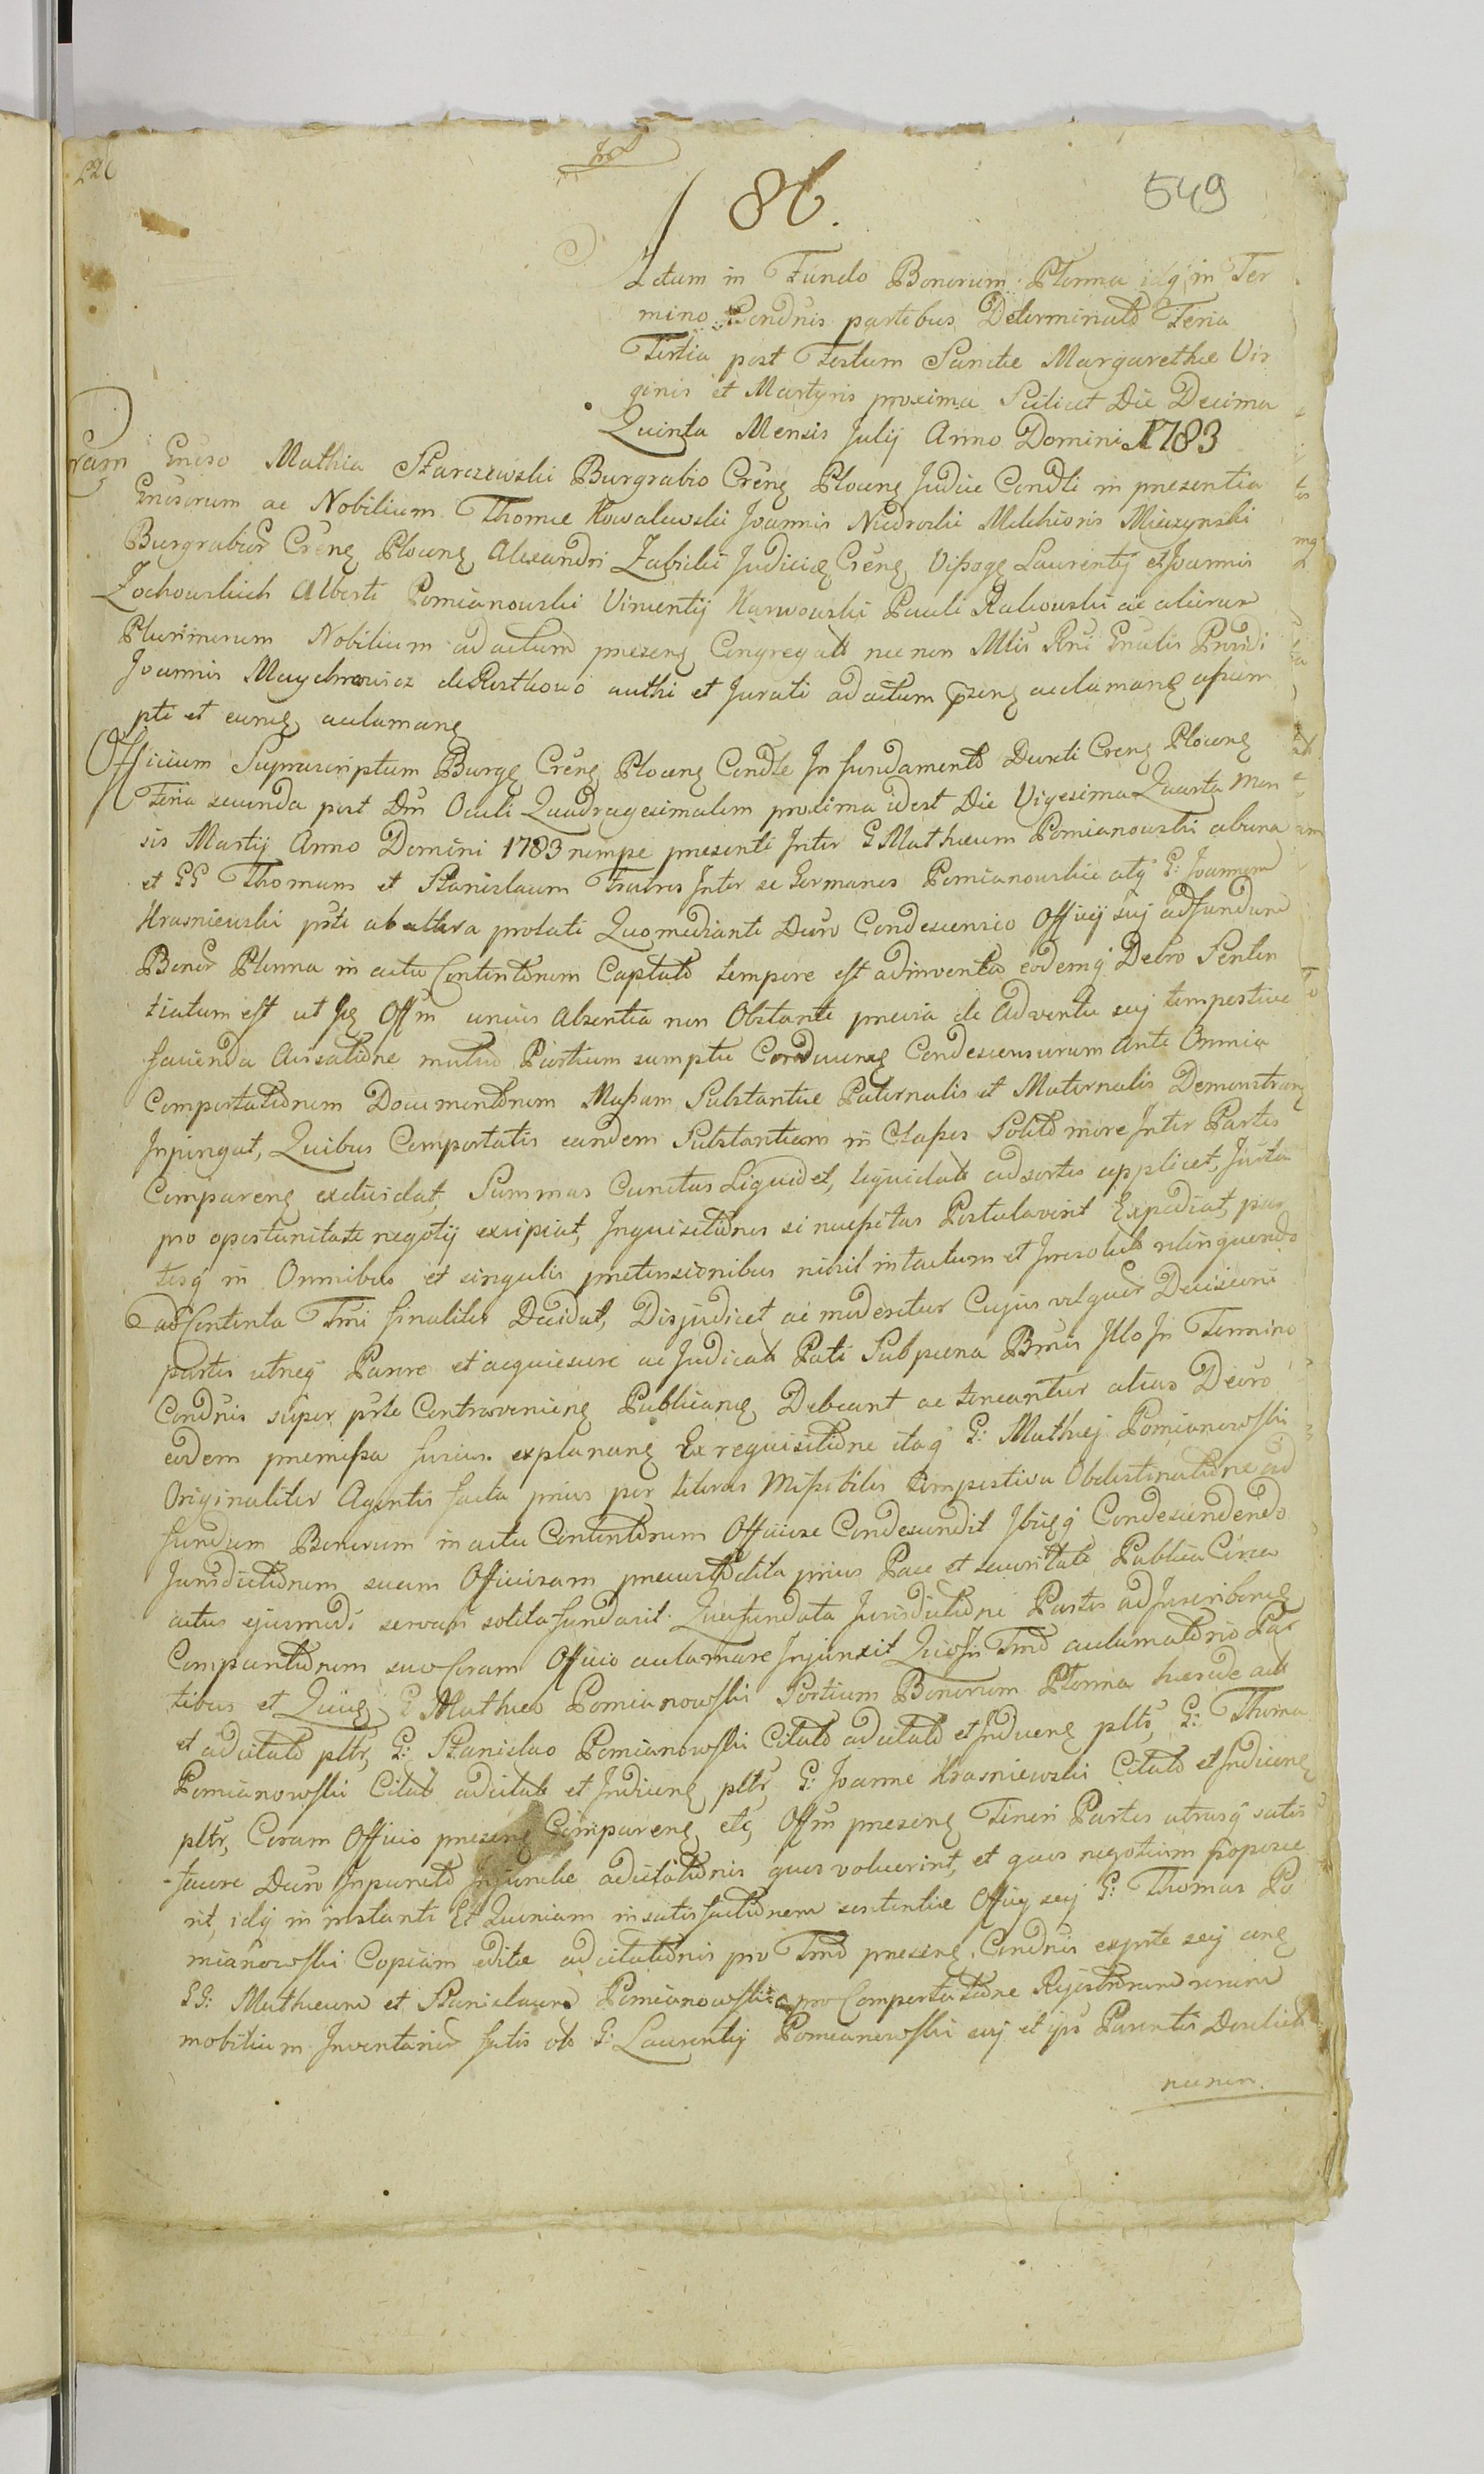 226
86.
549
Actum in Fundo Bonorum Płonna idq in Ter
mino Condnis partibus Determinato Feria
Tertia post Festum Sanctæ Margarethæ Vir
ginis et Martyris proxima Scilicet Die Decima
Quinta Mensis Julij Anno Domini 1783
Coram Gnoso Mathia Starczewski Burgrabio Creng Ploceng Judice Condli in presentia
Gnosorum ac Nobilium Thomæ Kowalewski Joannis Niedroski Melchioris Mieszynski
Burgrabior Creng Ploceng Alexandri Zabicki Judicig Creng Vissogg Laurentij et Joannis
Zochowskich Alberti Pomianowski Vincentij Karwowski Pauli Rakowski ac aliorum
Plurimorum Nobilium ad actum preseng Congregat necnon Mtis Rni
Joannis authi et Jurati ad actum preseng acclamang assum
pti et eumq acclamang
Officium Suprascriptum Burgg Creng Ploceng Condle In fundamento Decreti Creng Ploceng
Feria secunda post Dm Oculi Quadragesimalem proxima idest Die Vigesima Quarta Men
sis Martij Anno Domini 1783 nempe presenti Inter G Mathæum Pomianowski ab una
et GG Thomam et Stanislaum Fratres Inter se Germanos Pomianowskie atq G: Joannem
Krasniewski prte ab altera prolati Quo mediante Decro Condescensio Officij suj ad fundum
Bonor Płonna in actu Contentorum Captato tempore est adinventa eodemq Decro Senten
tiatum est ut se Offm unius Absentia non Obstante previa de Adventu suj tempestive
facienda Avisatione mutuo Partium sumptu Condescensurum ante Omnia
Comportationem Documentorum Massam Substantiæ Paternalis et Maternalis Demonstrang
Injungat, Quibus Comportatis eandem Substantiam in Classes Solito more Inter Partes
Compareng exdividat, Summas Cunctas Liquidet, liquidatas ad sortes applicet, Jurta
pro oportunitate negotij excipiat, Inquisitiones si necessitas Postulaverit Expediat, par
tesq in Omnibus et singulis pretensionibus nihil intactum et Irresolutum relinquendo
ad Contenta Tmi finaliter Decidat, Disjudicet ac moderetur Cujus vel quor Decisioni
partes utreq Parere et acquiescere ac Judicata Pati Sub poena Bmis Illo In Termino
Condnis super prte Contraveniens Publicang Debeant ac teneantur alias Decro
eodem premissa fusius explanang Ex requisitione itaq G: Mathej Pomianowski
Originaliter Agentis facta prius per literas Missibiles tempestiva Obdestinatione ad
fundum Bonorum in actu Contentorum Officiose Condescendit Ibidemq Condescendendo
Jurisdictionem suam Officiosam precustodita prius Pace et securitate Publica Circa
actus ejusmodi servari solita fundavit Qua fundata Jurisdictione Partes ad Inscribeng
Comparitionem suo coram Officio acclamare Injunxit Quo In Tmo acclamationis Par
tibus et Quidem G Matheo Pomianowski Sortium Bonorum Płonna hærede
et adcitato pltr, G: Stanislao Pomianowski Citato adcitato et Induceng pltr, G: Thoma
Pomianowski Citato adcitato et Induceng pltr, G: Joanne Krasniewski Citato et Induceng
pltr, Coram Officio preseng Compareng etc, Offm preseng Fineri Partes utrasq satis
facere Decro Inpuncto Injunctæ adcitationis quos voluerint, et quos negotium poposce
rit, idq in instanti Et Quoniam in satisfactionem sententiæ Officij suj G: Thomas Po
mianowski Copiam editæ adcitationis pro Tmo preseng Condnis exprte sej ceng
GG: Mathæum et Stanislaum Pomianowskie pro Comportatione Registrorum rerum
mobilium Inventarior fatis olo G: Laurentij Pomianowski suj et ipsor Parentis Derelict
necnon